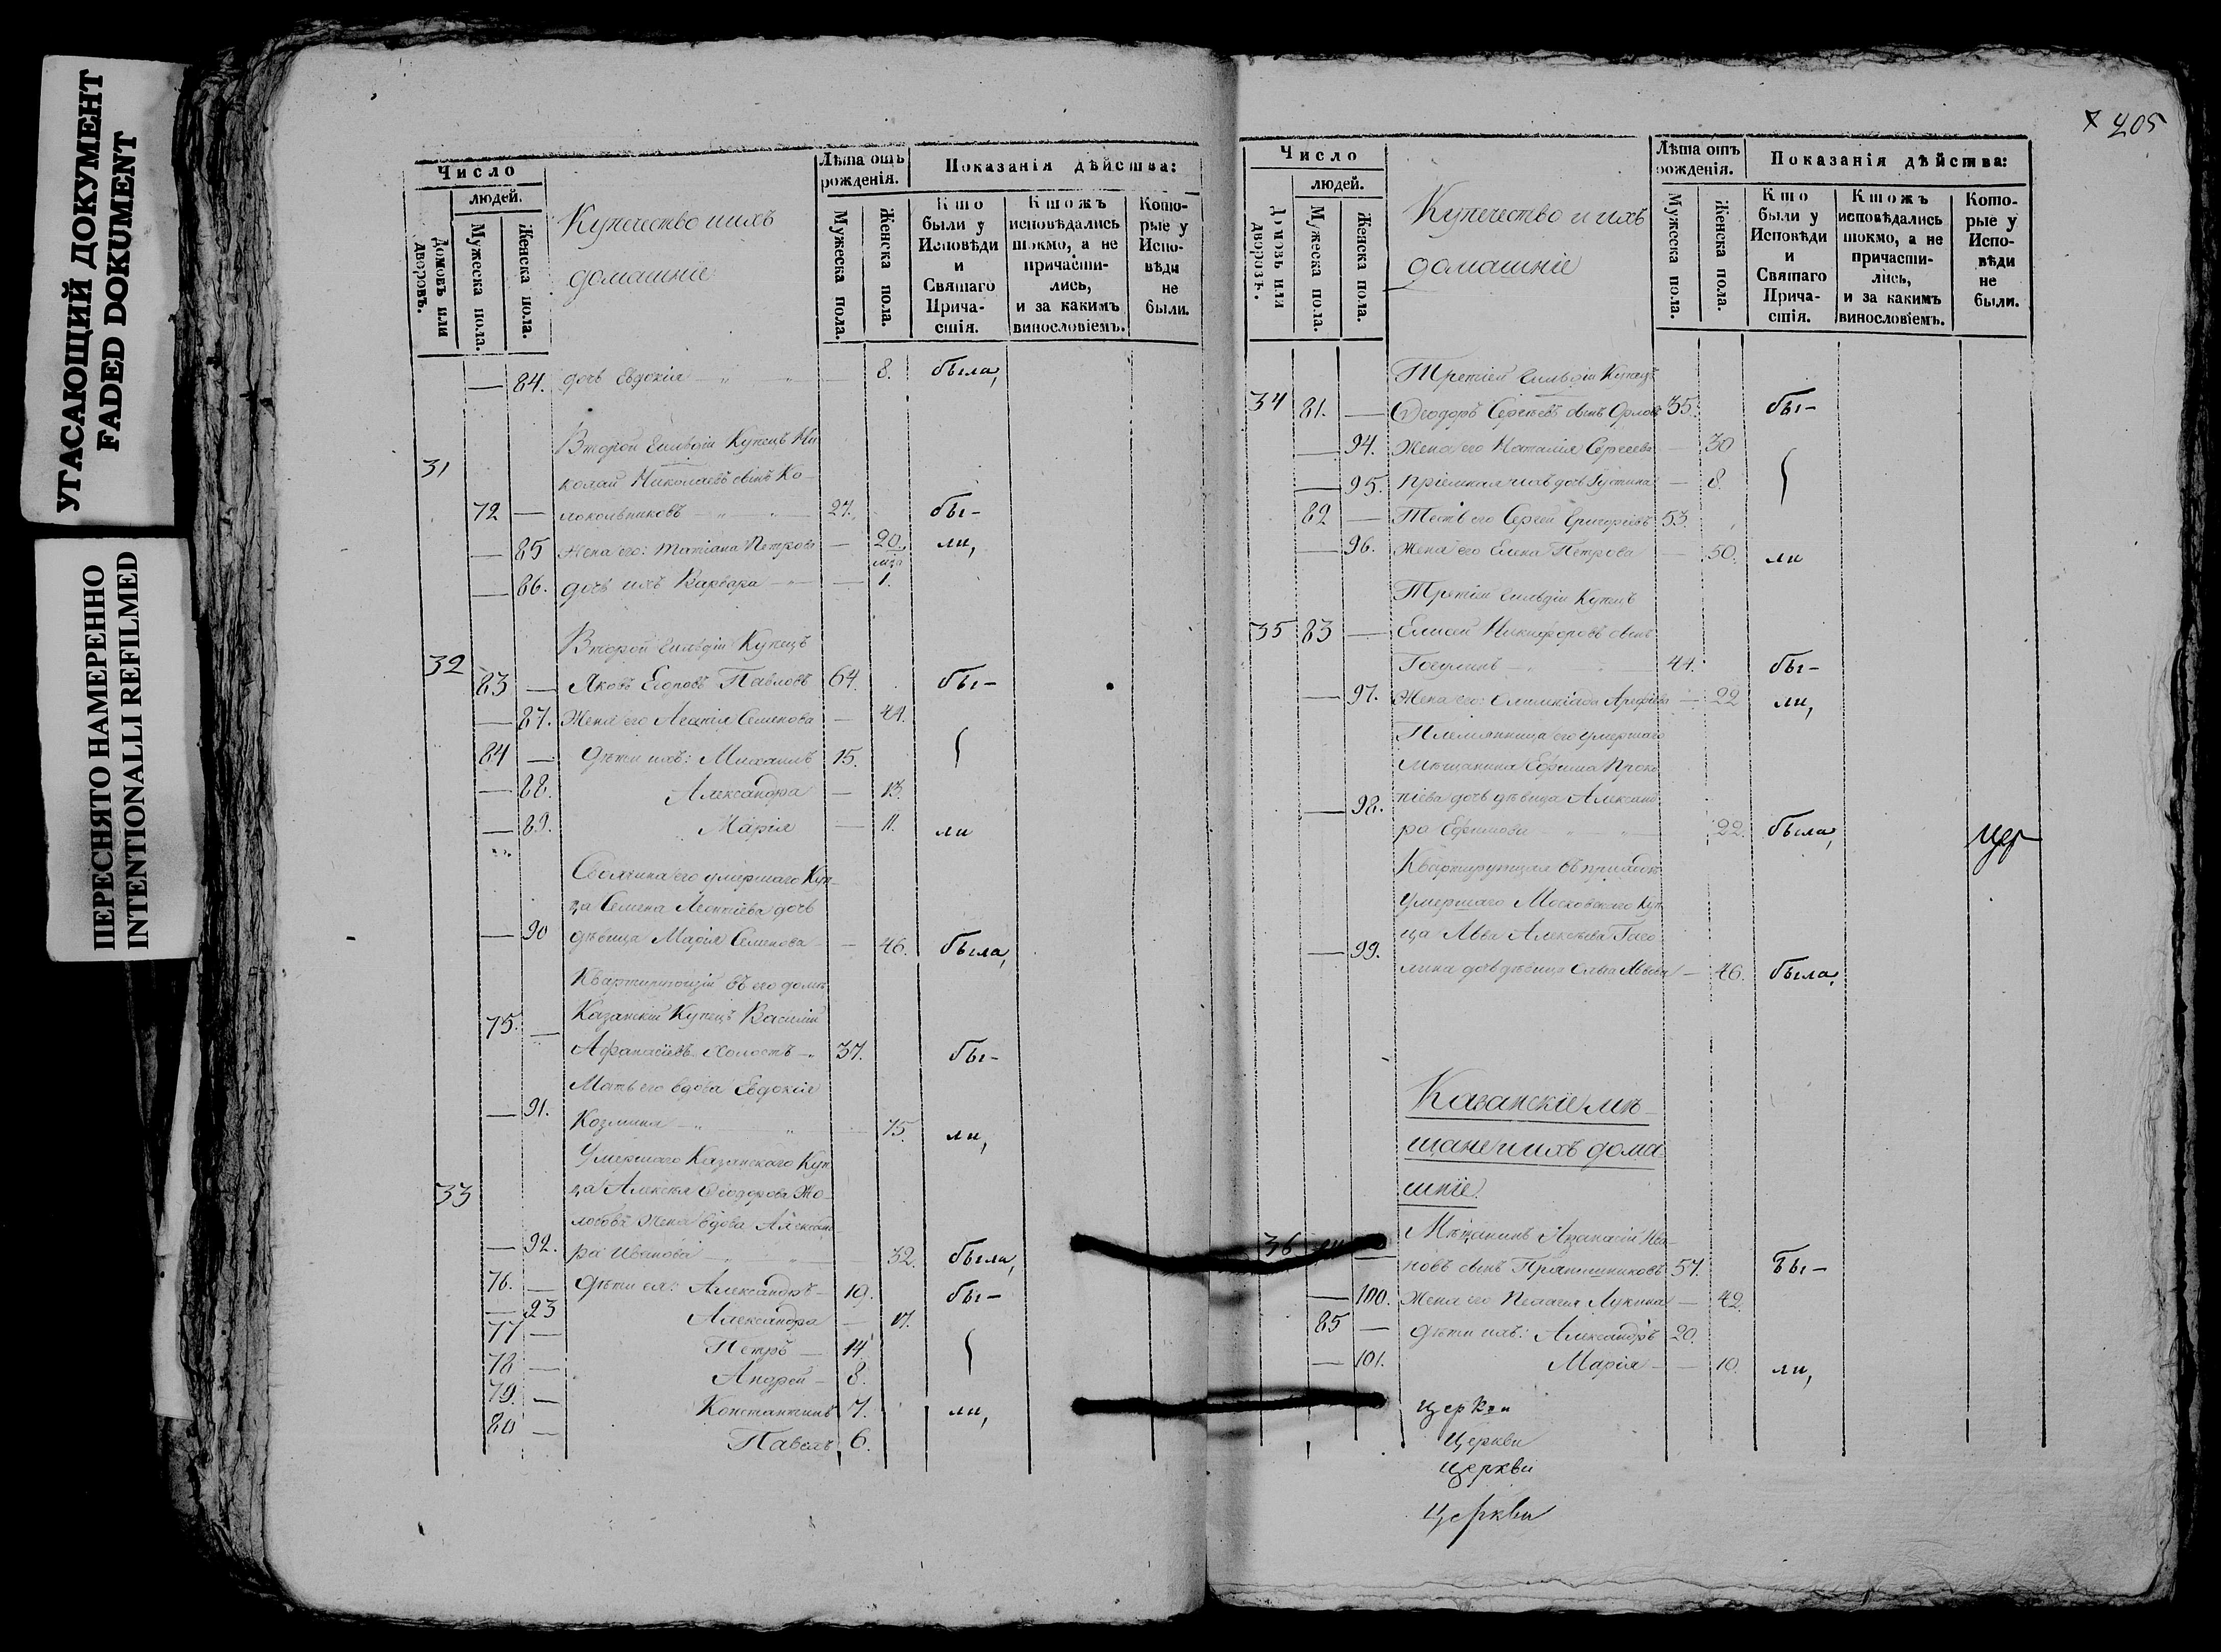 УГАСАЮЩИЙ ДОКУМЕНТ
FADED DOKUMENT
ПЕРЕСНЯТО НАМЕРЕННО
INTENTIONALLI REFILMED
Число
людей.
Домовъ или дворовъ.
Мужеска пола.
Женска пола.
Купечество и ихъ
домашніе
Лѣта отъ рожденія.
Мужеска пола.
Женска пола.
Показанія дѣйства:
Кто были у Исповѣди и Святаго Прича-стія.
Ктожъ исповѣдались токмо, а не причасти-лись, и за какимъ винословіемъ.
Кото-рые у Испо-вѣди не были.
— 84. дочь Евдокія — 8. была,
Второй гильдіи Купецъ Ни
31
колай Николаевъ сынъ Ко-
72 — локольниковъ 27. бы-
— 85 Жена его: Татіана Петрова — 20 ли,
— 86. дочь ихъ Варвара — 1.
Второй гильдіи Купецъ
32
83 — Яковъ Егоровъ Павловъ 64. бы-
— 87. Жена его Семенова — 44.
84 — Дѣти ихъ: Михаилъ 15.
— 88. Александра — 13.
— 89. Марія — 11. ли
его умершаго Куп-
ца Семена Леонтіева дочь
— 90 дѣвица Марія Семенова — 46. была,
Квартирующій въ его домѣ
75. — Казанскій Купецъ Василій
Афанасіевъ холостъ 37. бы-
Мать его вдова Евдокія
— 91. Козмина 75. ли,
Умершаго Казанскаго Куп
33 ца Алексѣя Ѳеодорова
жена вдова Александ
— 92. ра Иванова 32. была,
76. — Дѣти ея: Александръ — 19. бы-
— 93 Александра — 17.
77 — Петръ — 14
78 — Андрей — 8.
79. — Константинъ 7. ли,
80 — Павелъ 6.
405
Число
людей.
Домовъ или дворовъ.
Мужеска пола.
Женска пола.
Купечество и ихъ
домашніе
Лѣта отъ рожденія.
Мужеска пола.
Женска пола.
Показанія дѣйства:
Кто были у Исповѣди и Святаго Прича-стія.
Ктожъ исповѣдались токмо, а не причасти-лись, и за какимъ винословіемъ.
Кото-рые у Испо-вѣди не были.
Третьей гильдіи Купецъ
34 81. — Ѳеодоръ Сергѣевъ сынъ Орловъ 35. бы-
— 94. Жена его Наталія Сергеева — 30
— 95. Пріемная ихъ дочь — 8.
82 — Тесть его Сергей Григорьевъ 53.
— 96. Жена его Елена Петрова — 50. ли
Третьей гильдіи Купецъ
35 83 — Елисей Никифоровъ сынъ
44. бы-
— 97. Жена его: — 22 ли,
Племянница его умершаго
Мѣщанина Ефима Проко
— 98. піева дочь дѣвица Александ
ра Ефимова 22. была, цер
Квартирующая
умершаго Московскаго Куп
— 99. ца Льва Алексѣева
дочь дѣвица Львова — 46. была,
Казанскіе мѣ-
щане и ихъ дома
шніе.
36 Мѣщанинъ Ива-
новъ сынъ Прянишниковъ 57. бы-
— 100. Жена его Пелагея Лукина — 42.
85 — Дѣти ихъ: Александръ 20.
— 101. Марія — 10 ли,
церкви
Церкви
церкви
Церкви